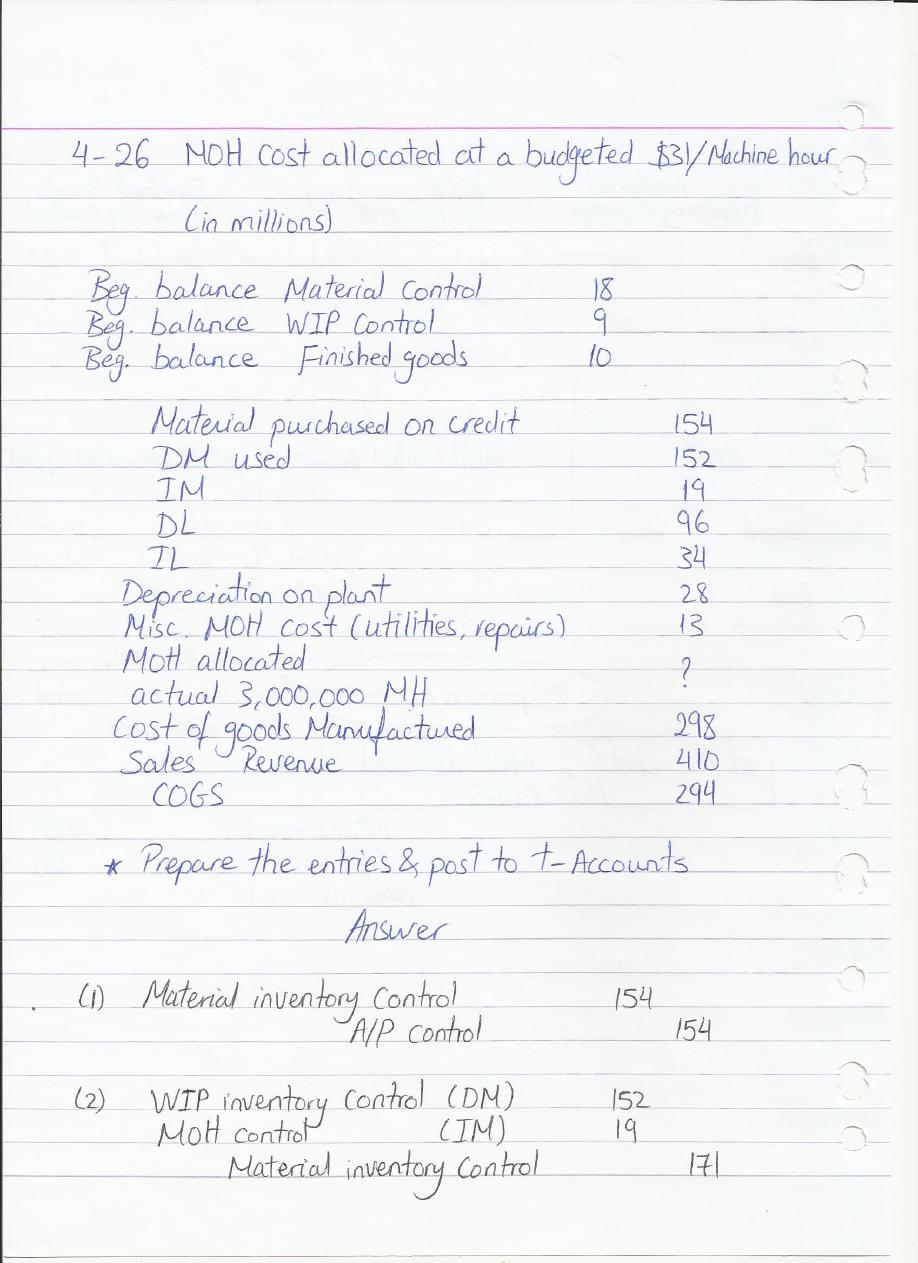 4-26 MOH cost allocated at a budgeted $31/Machine hour
(in millions)
Beg. balance Material Control 18
Beg. balance WIP Control 9
Beg. balance Finished goods 10
Material purchased on credit 154
DM used 152
IM 19
DL 96
IL 34
Depreciation on plant 28
Misc. MOH cost (utilities, repairs) 13
MOH allocated ?
actual 3,000,000 MH
Cost of goods Manufactured 298
Sales Revenue 410
COGS 294
* Prepare the entries & post to t-Accounts
Answer
(1) Material inventory Control 154
A/P control 154
(2) WIP inventory Control (DM) 152
MOH control (IM) 19
Material inventory Control 171